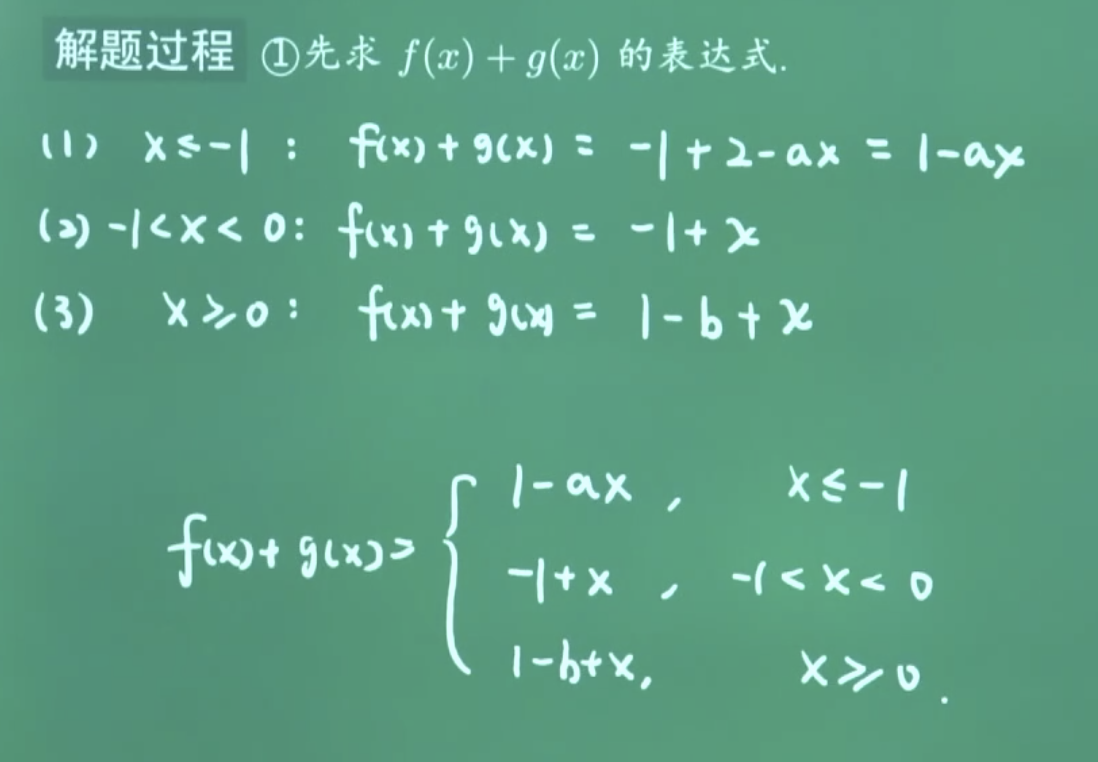 解题过程 ①先求 f(x) + g(x) 的表达式.
(1) x ≤ -1 : f(x) + g(x) = -1 + 2 - ax = 1 - ax
(2) -1 < x < 0 : f(x) + g(x) = -1 + x
(3) x ≥ 0 : f(x) + g(x) = 1 - b + x
1 - ax , x ≤ -1
f(x) + g(x) = { -1 + x , -1 < x < 0
1 - b + x, x ≥ 0 .